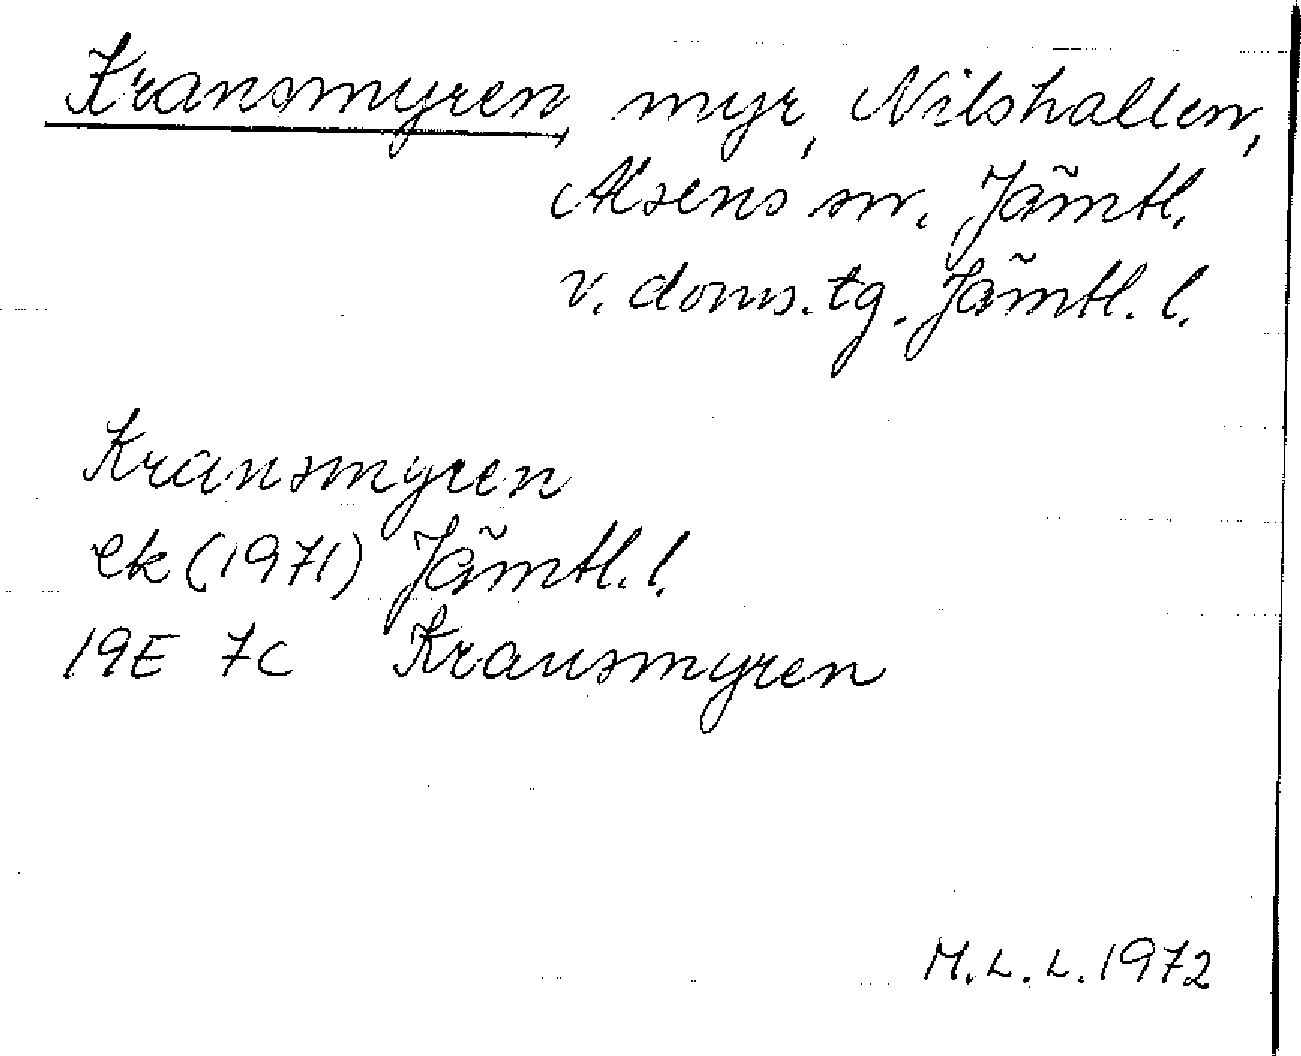 Kransmyren, myr, Nilshallen,
Alsens sn. Jämtl.
v. doms.tg. Jämtl. l.
Kransmyren
ek (1971) Jämtl. l.
19E 7C Kransmyren
M.L.L. 1972